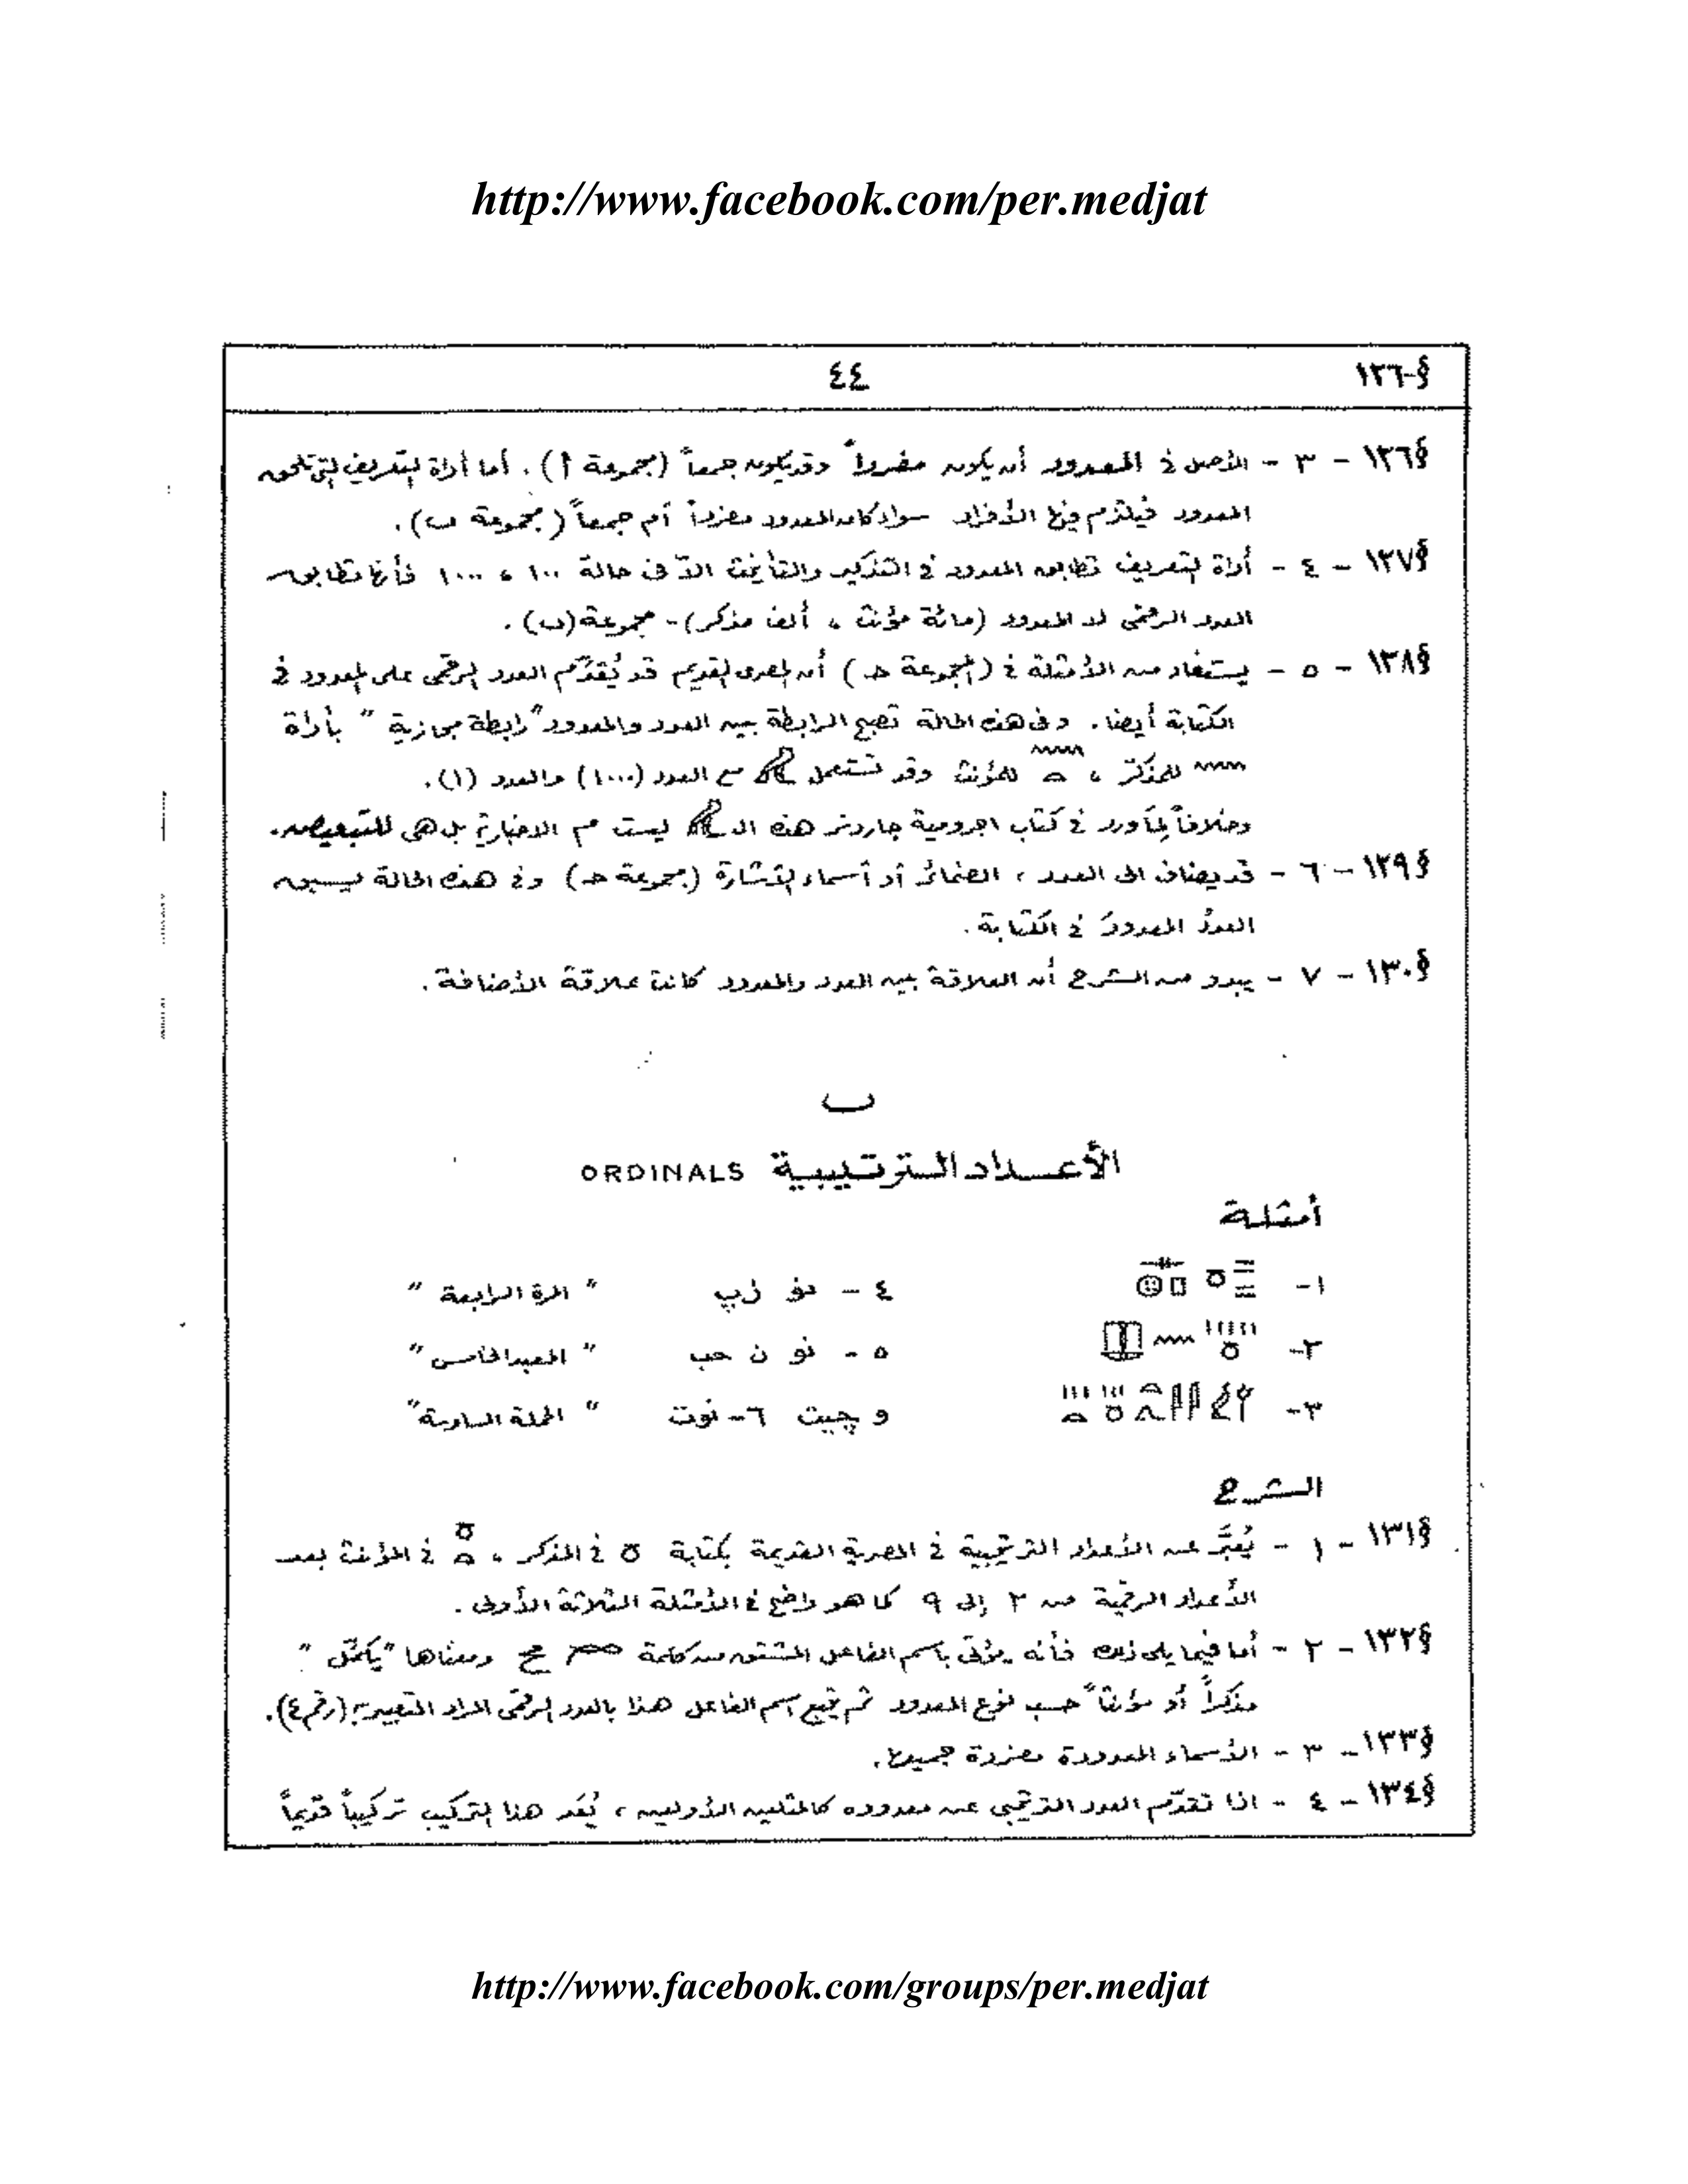 http://www.facebook.com/per.medjat
§-١٢٦ ٤٤
§١٢٦ - ٣ - الأصل في المعدود أن يكون مفرداً وقد يكون جمعاً (مجموعة أ). أما أداة التعريف التي تلحق
المعدود فيلتزم فيها الأفراد سواء كان المعدود مفرداً أم جمعاً (مجموعة ب).
§١٢٧ - ٤ - أداة التعريف تطابق المعدود في التذكير والتأنيث الاّ في حالة ١٠٠ ، ١٠٠٠ فأنها تطابق
العدد الرقمى لا المعدود (مائة مؤنث ، ألف مذكر) - مجموعة (ب).
§١٢٨ - ٥ - يستفاد من الأمثلة في (المجموعة حـ) أن المصرى القديم قد يُقدِّم العدد الرقمى على المعدود في
الكتابة أيضا. وفى هذه الحالة تصبح الرابطة بين العدد والمعدود "رابطة مجازية" بأداة
𓈖 للمذكر ، 𓈖𓏏 للمؤنث وقد تستعمل 𓅓 مع العدد (١٠٠٠) والعدد (١).
وخلافاً لِمَا ورد في كتاب اجرومية جاردنر هذه الـ 𓅓 ليست م الاخبارية بل هى للتبعيض.
§١٢٩ - ٦ - قد يضاف الى العدد ، الضمائر أو أسماء الأشارة (مجموعة حـ) وفى هذه الحالة يسبق
العددُ المعدودَ في الكتابة.
§١٣٠ - ٧ - يبدو من الشرح أن العلاقة بين العدد والمعدود كانت علاقة الأضافة.
ب
الأعداد الترتيبية ORDINALS
أمثلة
١- ٤ - نو زپ "المرة الرابعة"
٢- ٥ - نو ن حب "العيد الخامس"
٣- وچيت ٦ - نوت "الحملة السادسة"
الشرح
§١٣١ - ١ - يُعبَّر عن الأعداد الترتيبية في المصرية القديمة بكتابة 𓏌 في المذكر ، 𓏌𓏏 في المؤنث بعد
الأعداد الرقمية من ٢ إلى ٩ كما هو واضح في الأمثلة الثلاثة الأولى.
§١٣٢ - ٢ - أما فيما يلى ذلك فأنه يؤتى باسم الفاعل المشتق من كلمة مح ومعناها "يكمّل"
مذكراً أو مؤنثاً حسب نوع المعدود ثم يتبع اسم الفاعل هذا بالعدد الرقمى المراد التعبير به (رقم ٤).
§١٣٣ - ٣ - الأسماء المعدودة مفردة جميعها.
§١٣٤ - ٤ - اذا تقدّم العدد الترتيبى عن معدوده كالمثلين الأولين ، يُعَد هذا التركيب تركيباً قديماً
http://www.facebook.com/groups/per.medjat